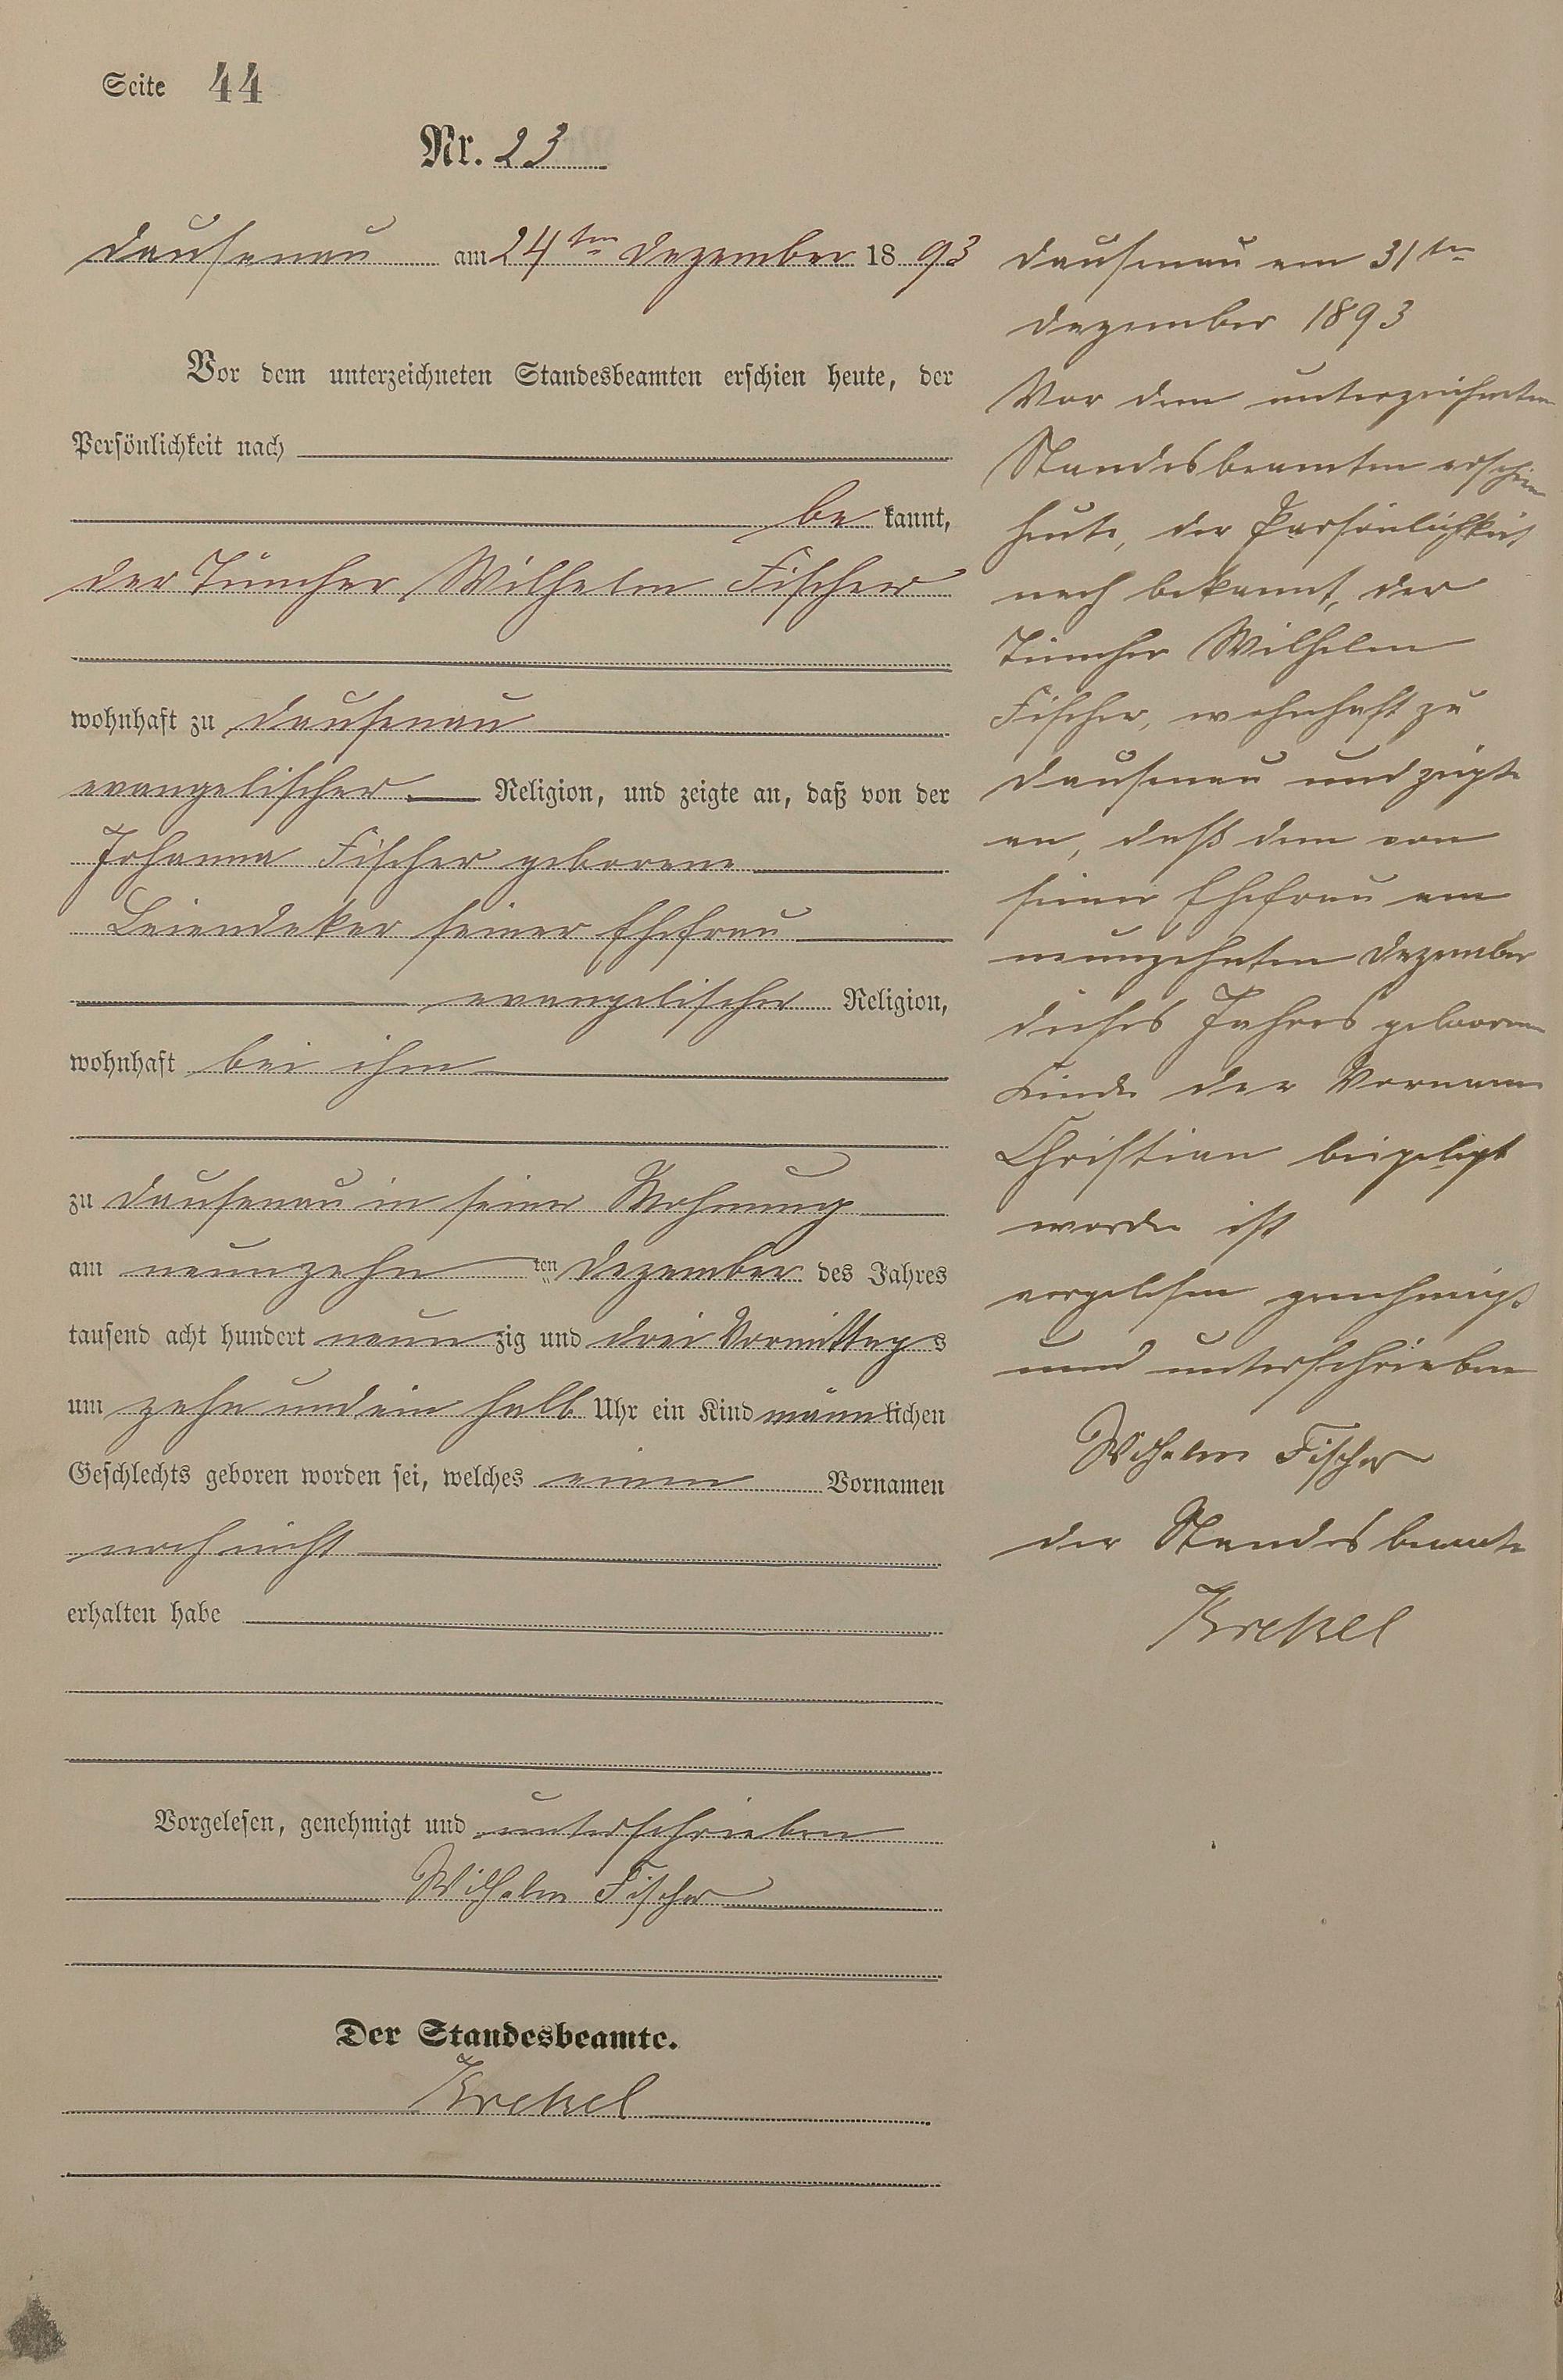 Seite 44
Nr. 23
Dausenau am 24ten Dezember 1893
Vor dem unterzeichneten Standesbeamten erschien heute, der
Persönlichkeit nach
be kannt,
der Tüncher Wilhelm Fischer
wohnhaft zu Dausenau
evangelischer Religion, und zeigte an, daß von der
Johanna Fischer geborene
Leiendeker seiner Ehefrau
evangelischer Religion,
wohnhaft bei ihm
zu Dausenau in seiner Wohnung
am neunzehn ten Dezember des Jahres
tausend acht hundert neun zig und drei Vormittags
um zehn und ein halb Uhr ein Kind männlichen
Geschlechts geboren worden sei, welches einen Vornamen
noch nicht
erhalten habe
Vorgelesen, genehmigt und unterschrieben
Wilhelm Fischer
Der Standesbeamte.
Krekel
Dausenau am 31ten
Dezember 1893
Vor dem unterzeichneten
Standesbeamten erschien
heute, der Persönlichkeit
nach bekannt, der
Tüncher Wilhelm
Fischer, wohnhaft zu
Dausenau und zeigte
an, daß dem von
seiner Ehefrau am
neunzehnten Dezember
dieses Jahres geborenen
Kinde der Vorname
Christian beigelegt
worden ist
vorgelesen genehmigt
und unterschrieben
Wilhelm Fischer
der Standesbeamte
Krekel